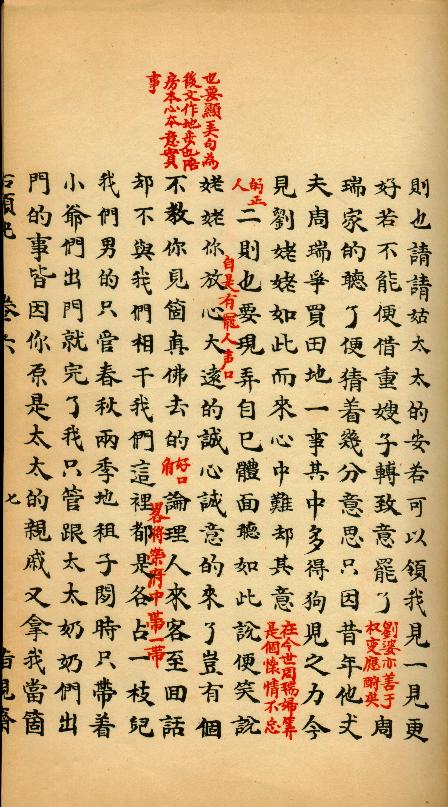 則也請請姑太太的安若可以領我見一見更
好若不能便借重嫂子轉致意罷了劉婆亦善于權变應酧矣周
瑞家的聽了便猜着幾分意思只因昔年他丈
夫周瑞爭買田地一事其中多得狗児之力今
見劉姥姥如此而來心中難却其意在今世周瑞婦算是個懷情不忘
的正人二則也要現弄自己體面聽如此說便笑說
姥姥你放心大遠的誠心誠意的來了豈有個
不教你見箇真佛去的好口角論理人來客至囬話
却不與我們相干我們這裡都是各占一枝兒
我們男的只管春秋兩季地租子閒時只帶着
小爺們出門就完了我只管跟太太奶奶們出
門的事皆因你原是太太的親戚又拿我當箇
也要顯美句為
後文作地步也陪
房本心本意實
事
自是有寵人声口
畧將榮府中帶一帶
卷六
七